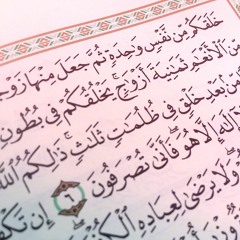 خَلَقَكُم مِّن نَّفْسٍ وَٰحِدَةٍ ثُمَّ جَعَلَ مِنْهَا زَوْجَهَا
مِّنَ ٱلْأَنْعَٰمِ ثَمَٰنِيَةَ أَزْوَٰجٍ ۚ يَخْلُقُكُمْ فِى بُطُونِ
مِّنۢ بَعْدِ خَلْقٍ فِى ظُلُمَٰتٍ ثَلَٰثٍ ۚ ذَٰلِكُمُ ٱللَّهُ
إِلَٰهَ إِلَّا هُوَ ۖ فَأَنَّىٰ تُصْرَفُونَ ٦ إِن تَكْفُرُوا۟
وَلَا يَرْضَىٰ لِعِبَادِهِ ٱلْكُفْرَ ۖ